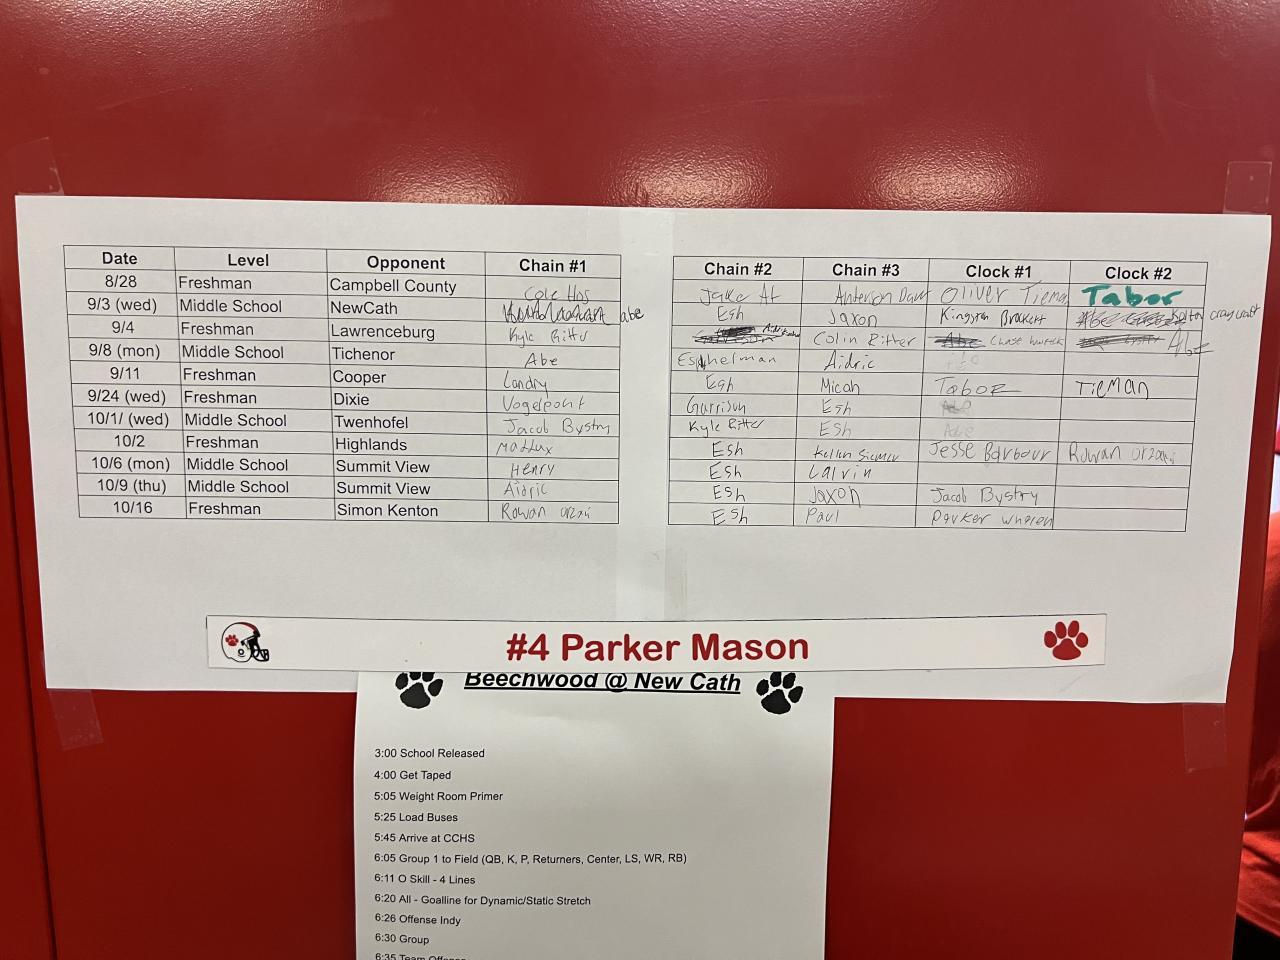 Date Level Opponent Chain #1 Chain #2 Chain #3 Clock #1 Clock #2
8/28 Freshman Campbell County Cole Jake Anderson Oliver Tabor
9/3 (wed) Middle School NewCath abe Esh Jaxon Kingston Brackett Kolton craycraft
9/4 Freshman Lawrenceburg Kyle Ritter Colin Ritter Abe Chase Abe
9/8 (mon) Middle School Tichenor Abe Eshelman Aidric
9/11 Freshman Cooper Landry Esh Micah Tabor Tieman
9/24 (wed) Freshman Dixie Vogelpohl Garrison Esh
10/1/ (wed) Middle School Twenhofel Jacob Bystry Kyle Ritter Esh Abe
10/2 Freshman Highlands Mattux Esh Kellen Jesse Barbour Rowan
10/6 (mon) Middle School Summit View Henry Esh Calvin
10/9 (thu) Middle School Summit View Aidric Esh Jaxon Jacob Bystry
10/16 Freshman Simon Kenton Rowan Esh Paul Parker
#4 Parker Mason
Beechwood @ New Cath
3:00 School Released
4:00 Get Taped
5:05 Weight Room Primer
5:25 Load Buses
5:45 Arrive at CCHS
6:05 Group 1 to Field (QB, K, P, Returners, Center, LS, WR, RB)
6:11 O Skill - 4 Lines
6:20 All - Goalline for Dynamic/Static Stretch
6:26 Offense Indy
6:30 Group
6:35 Team Offense